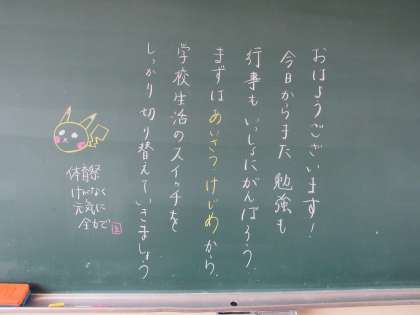 おはようございます!
今日からまた勉強も
行事もいっしょにがんばろう。
まずはあいさつけじめから。
学校生活のスイッチを
しっかり切り替えていきましょう
体育祭
けがなく
元気に
全力で